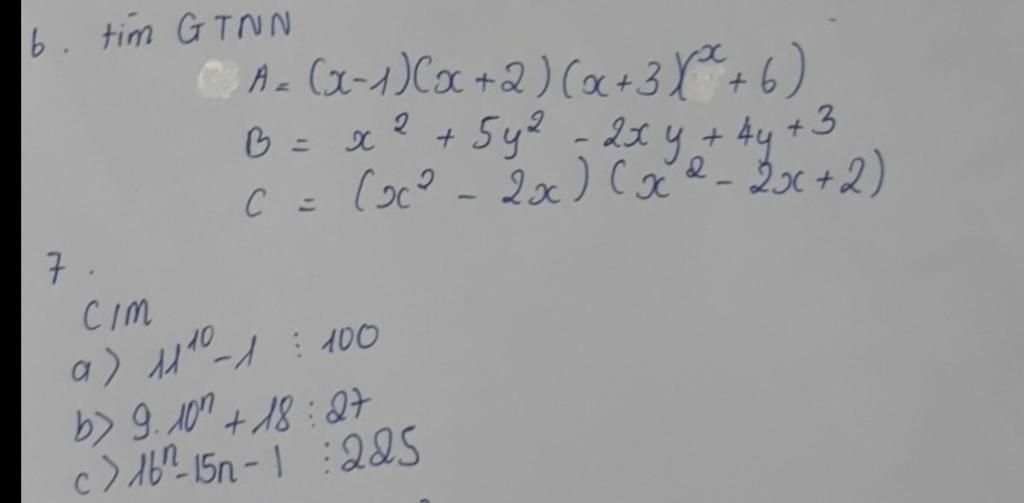 6. tìm GTNN
A = (x-1)(x+2)(x+3)(x+6)
B = x² + 5y² - 2xy + 4y + 3
C = (x² - 2x)(x² - 2x + 2)
7.
C/m
a) 11¹⁰ - 1 ⋮ 100
b) 9.10ⁿ + 18 ⋮ 27
c) 16ⁿ - 15n - 1 ⋮ 225